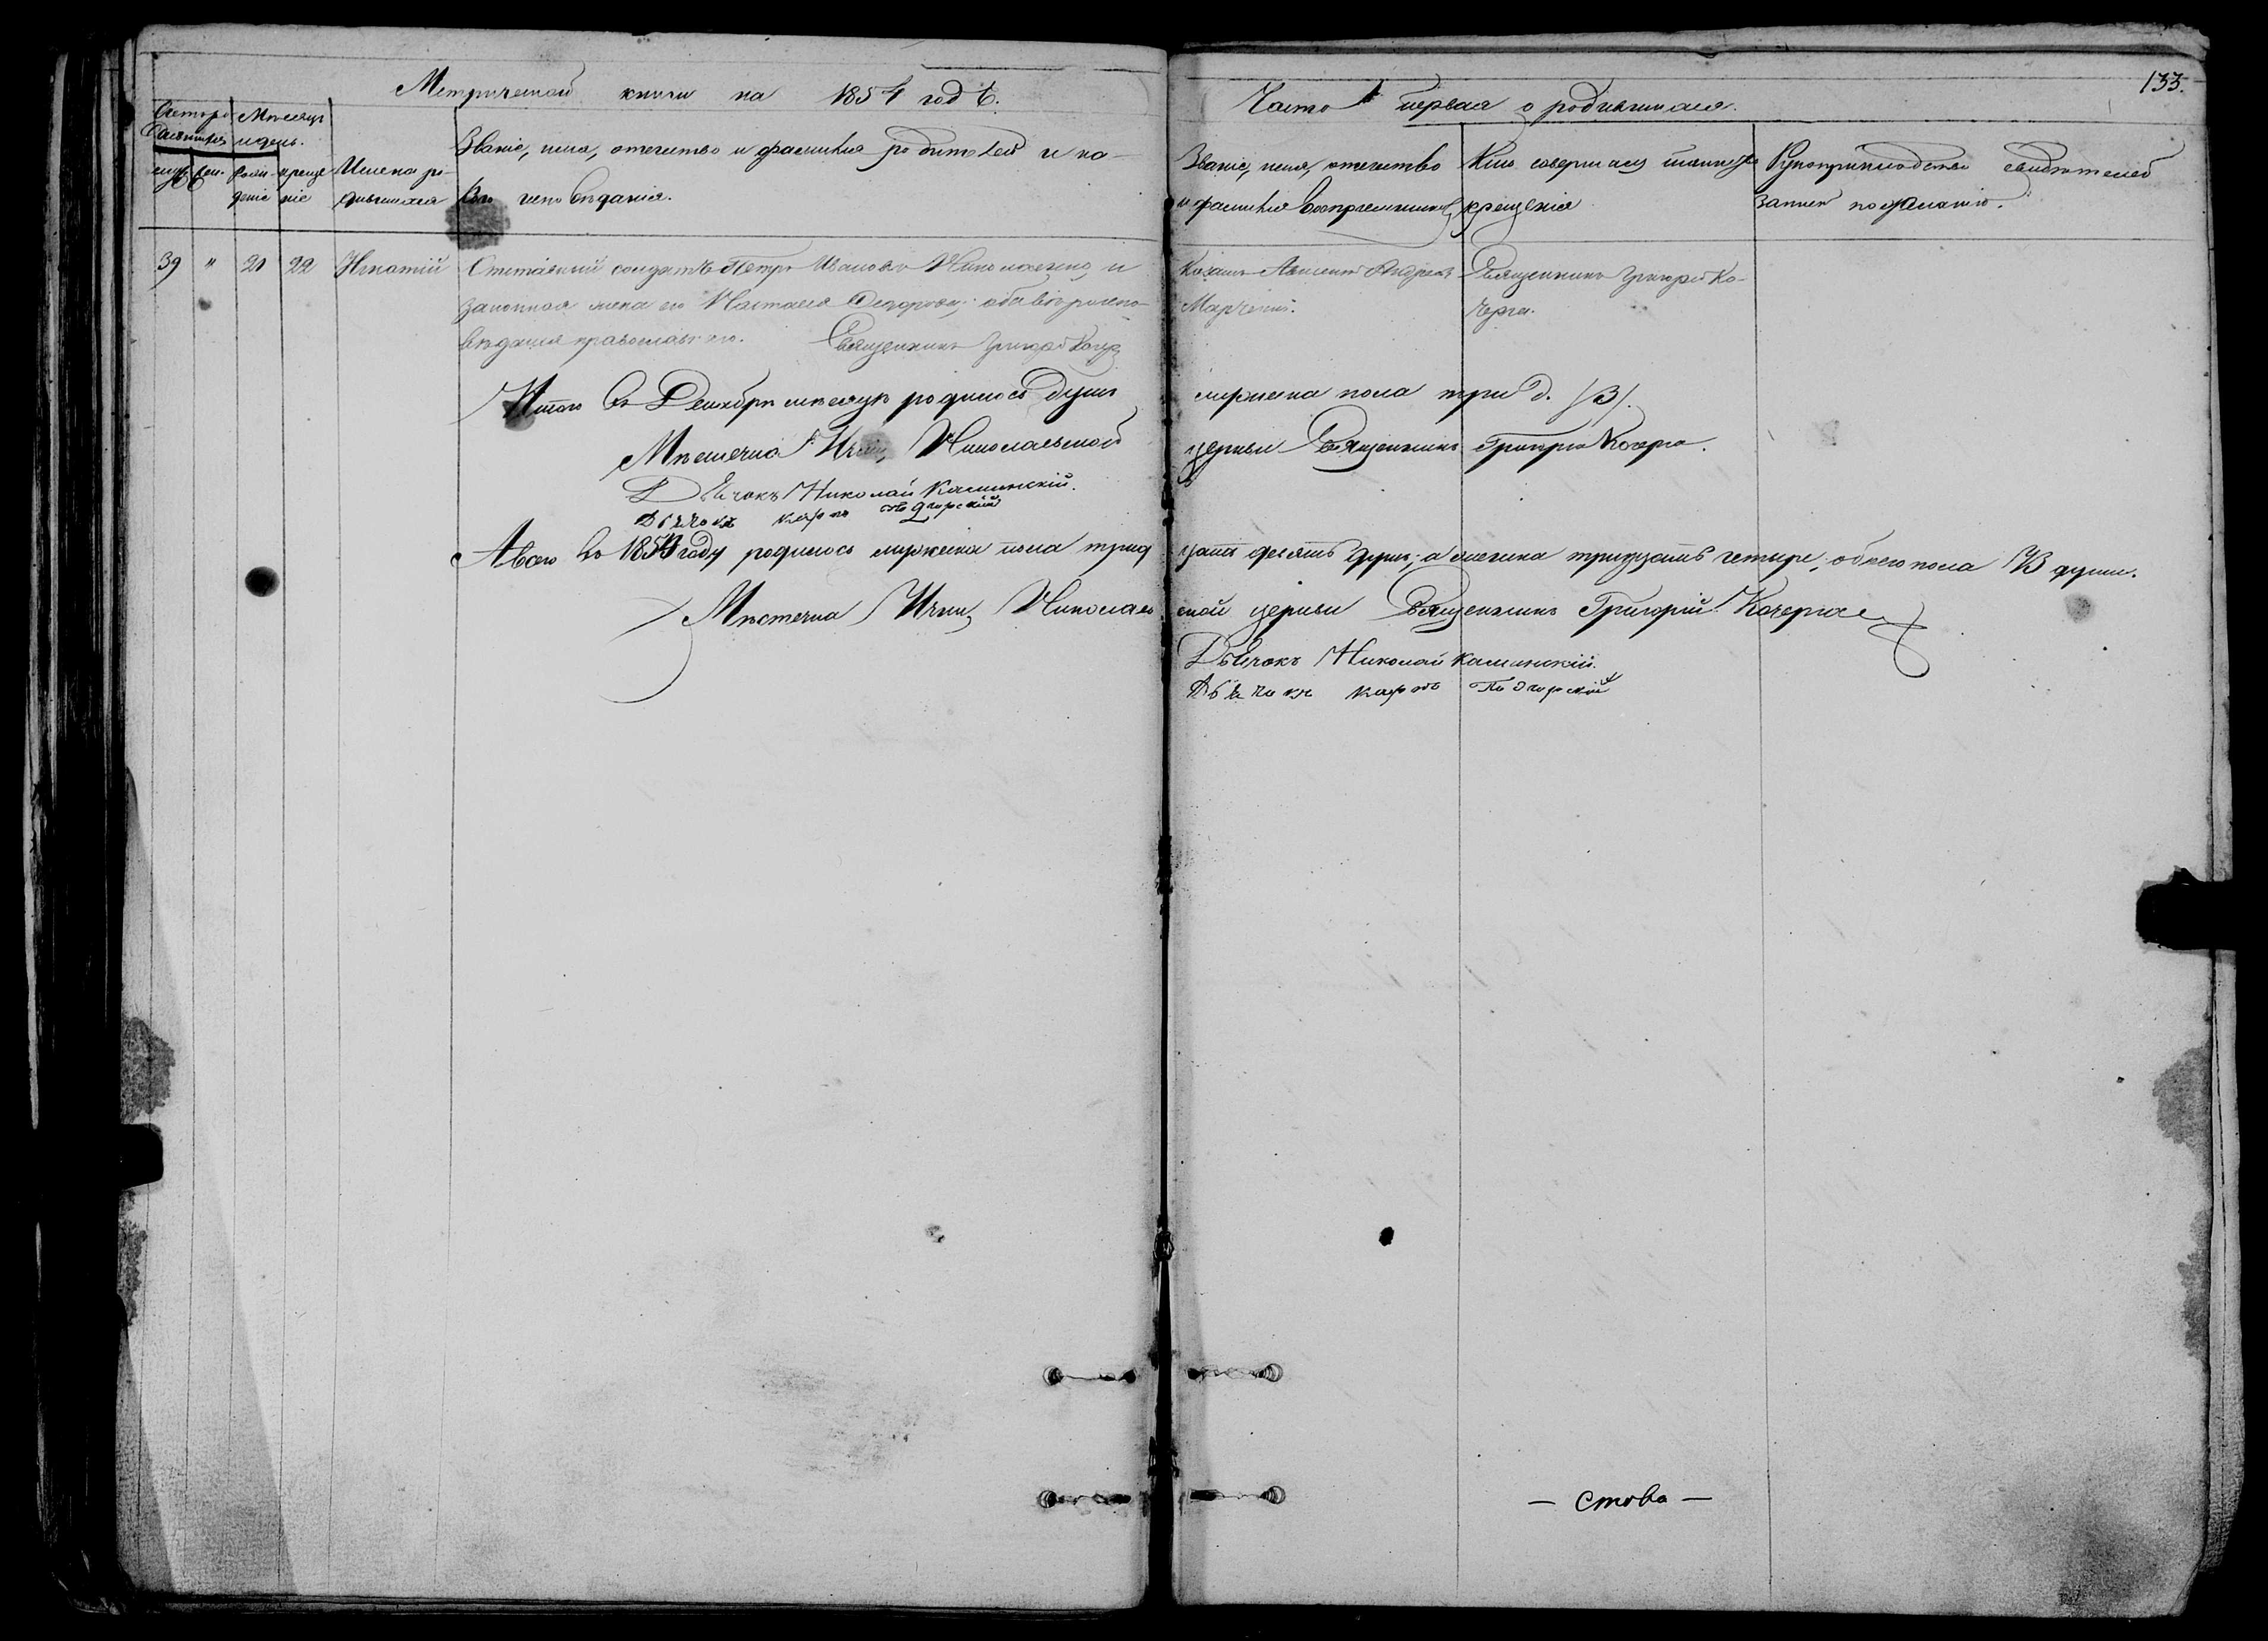 Метрической книги на 1854 годъ.
Часть первая о родившихся.
133.
Счетъ родившихся
Мѣсяцъ и день.
муж. жен.
рож-
деніе
креще
ніе
Имена ро-
дившихся
Званіе, имя, отечество и фамилія родителей и ка-
кого вѣроисповѣданія.
Званіе, имя, отечество
и фамилія воспріемниковъ
Кто совершалъ таинство
крещенія
Рукоприкладство свидѣтелей
записи по желанію.
39 " 21 22 Игнатій
Отставний солдатъ Петръ Ивановъ Николаенко, и
законная жена его Настасія Федорова; оба вѣроиспо-
вѣданія православнаго. Священникъ Григорій Кочерга
Козакъ Андреевъ
Марченко.
Священникъ Григорій Ко-
черга.
Итого въ Декабрѣ мѣсяцѣ родилось душъ мужеска пола три д. /3/.
Мѣстечка Ични Николаевской церкви Священникъ Григорій Кочерга.
Дьячокъ Николай Каминскій.
Дьячокъ Карпъ Подгорскій
А всего въ 1854 году родилось мужеска пола трид цать девять душъ; а женска тридцать четыре; обоего пола 73 души.
Мѣстечка Ични Николаев ской церкви Священникъ Григорій Кочерга
Дьячокъ Николай Каминскій.
Дьячокъ Карпъ Подгорскій
— Ство —